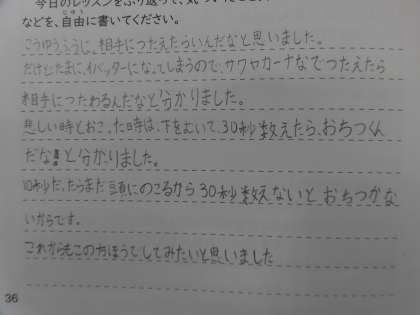 今日のレッスンをふり返って、気づいたこと
などを、自由に書いてください。
こうゆうふうに、相手につたえたらいいんだなと思いました。
だけど、たまに、イバッターになってしまうので、サワヤカーナなでつたえたら
相手につたわるんだなと分かりました。
悲しい時とおこった時は、下をむいて、30秒数えたら、おちつくん
だな!と分かりました。
10秒だったらまだ頭にのこるから30秒数えないとおちつかな
いからです。
これからもこの方ほうでしてみたいと思いました
36